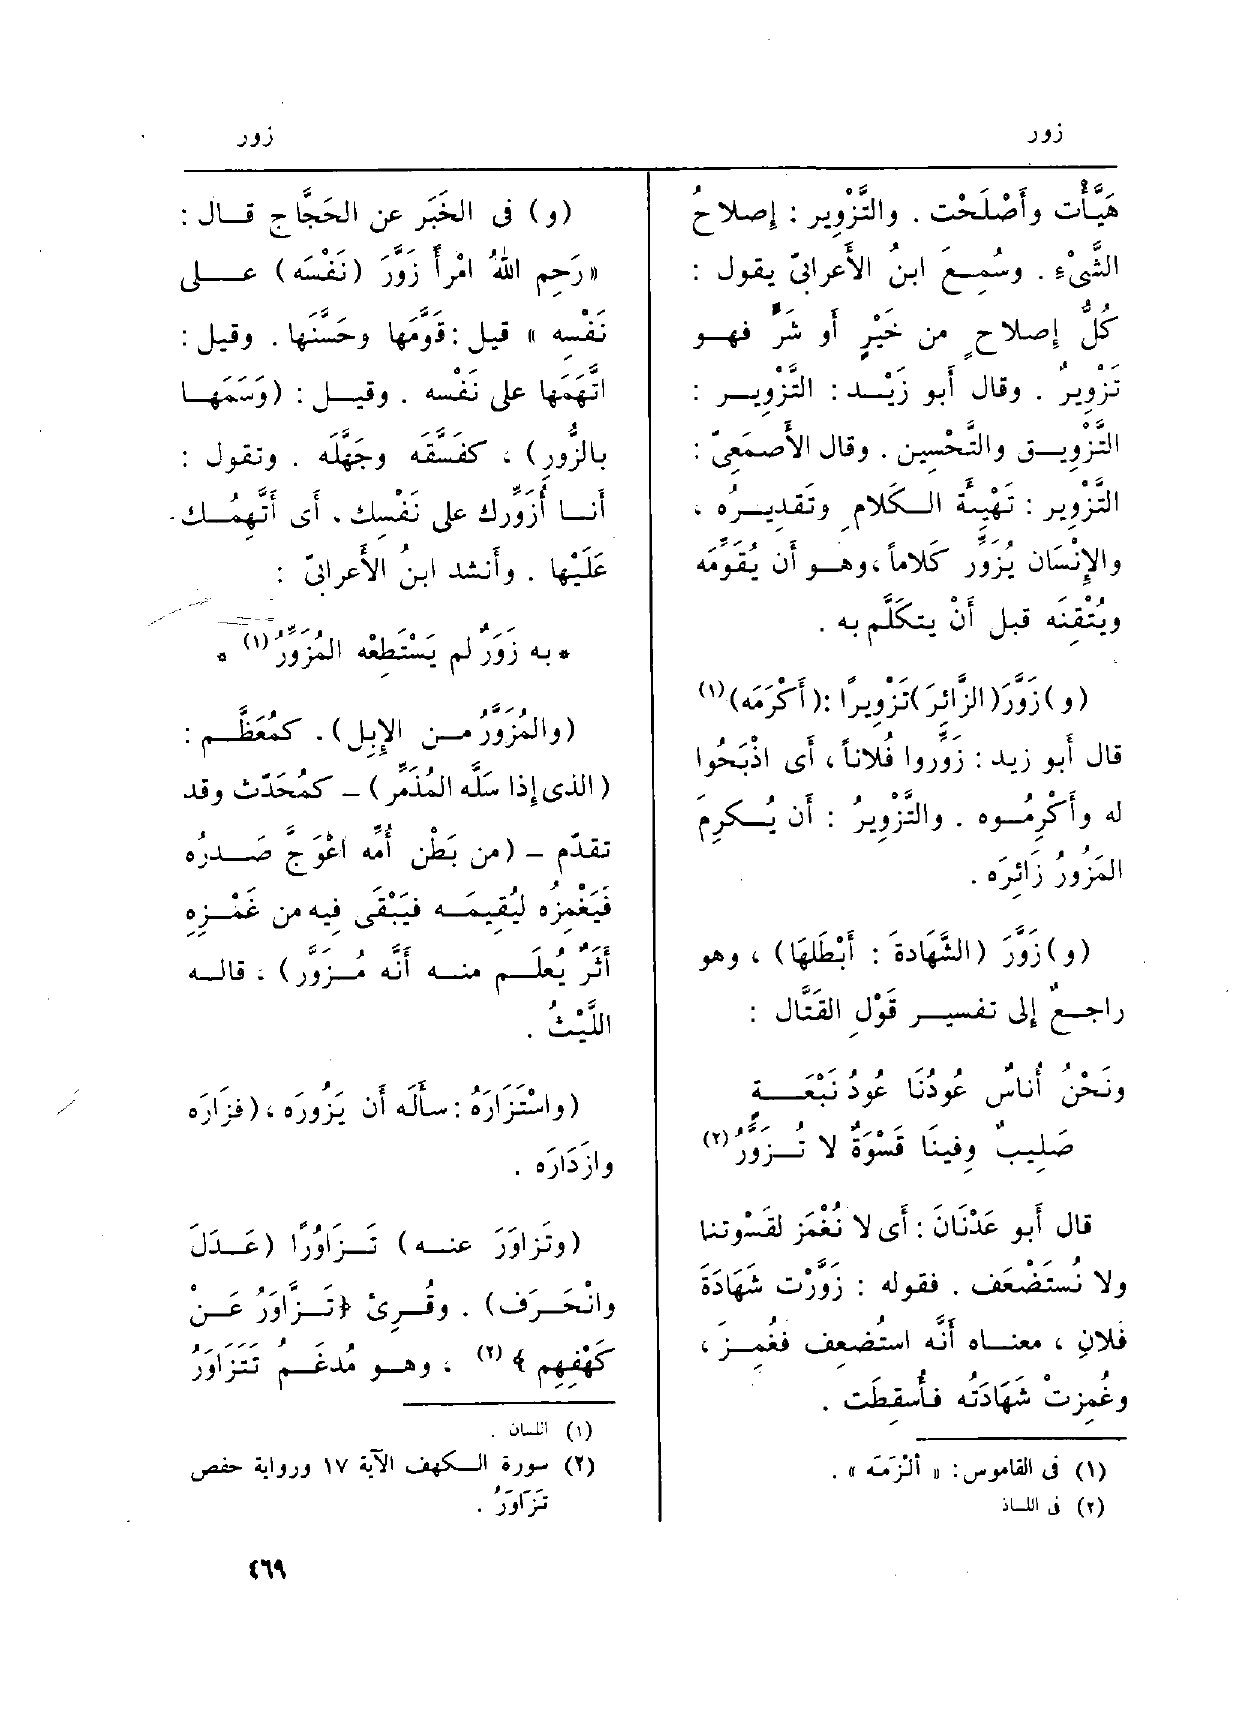 زور
هَيَّأْت وأَصْلَحْت . والتَّزْوِير : إِصلاحُ
الشَّىْءِ . وسُمِــعَ ابنُ الأَعرابىّ يقول :
كُلُّ إِصلاحٍ من خَيْرٍ أَو شَرٍّ فهــو
تَزْوِيرٌ . وقال أَبو زَيْــد : التَّزْوِيــر :
التَّزْوِيــق والتَّحْسِين . وقال الأَصمَعِىّ :
التَّزْوِير : تَهْيِئَة الــكَلامِ وتَقديــرُه ،
والإِنْسَان يُزَوِّر كَلاماً ، وهــو أَن يُقَوِّمَه
ويُتْقِنَه قبل أَنْ يتكَلَّم به .
(و) زَوَّرَ (الزَّائِرَ) تَزْوِيرًا : (أَكْرَمَه)(١)
قال أَبو زيد : زَوِّروا فُلاناً ، أَى اذْبَحُوا
له وأَكْرِمُــوه . والتَّزْوِيرُ : أَن يُــكرِمَ
المَزُورُ زَائِرَه .
(و) زَوَّرَ (الشَّهَادةَ : أَبْطَلَها) ، وهو
راجــعٌ إِلى تفسيــر قَوْلِ القَتَّال :
ونَحْنُ أُناسٌ عُودُنَا عُودُ نَبْعَــــة
صَلِيبٌ وفِينَا قَسْوَةٌ لا تُــزَوَّرُ(٢)
قال أَبو عَدْنَانَ : أَى لا نُغْمَز لقَسْوتنا
ولا نُستَضْعَف . فقوله : زَوَّرْت شَهَادَةَ
فُلانٍ ، معنــاه أَنَّه استُضعِف فغُمِــزَ ،
وغُمِزتْ شَهَادَتُه فأُسقِطَت .
(١) فى القاموس : « أَلْزَمَه » .
(٢) فى اللــان
زور
(و) فى الخَبَر عن الحَجَّاج قــال :
« رَحِم اللهُ امْرأً زَوَّرَ (نَفْسَه) عـــلى
نَفْسِه » قيل : قَوَّمَها وحَسَّنَها . وقيل :
اتَّهَمَها على نَفْسه . وقيــل : (وَسَمَهــا
بالزُّور) ، كفَسَّقَه وجَهَّلَه . وتقول :
أَنــا أُزَوِّرك على نَفْسِك ، أَى أَتَّهِمُــك
عَلَيْها . وأَنشد ابنُ الأَعرابىّ :
* به زَوَرٌ لم يَسْتَطِعْه المُزَوِّرُ(١) *
(والمُزَوَّرُ مــن الإِبِل) . كمُعَظَّــم :
(الذى إِذا سَلَّه المُذَمِّر) – كمُحَدِّث وقد
تقدّم – (من بَطْن أُمِّه اعْوَجَّ صَــدرُه
فيَغْمِزُه ليُقِيمَــه فيَبْقَى فيه من غَمْــزِه
أَثَرٌ يُعلَــم منــه أَنَّه مُــزَوَّر) ، قالــه
اللَّيْــثُ .
(واسْتَزَارَهُ : سأَلَه أَن يَزُورَه ، (فزَارَه
وازْدَارَه .
(وتَزاوَرَ عنــه) تَــزاوُرًا (عَــدَلَ
وانْحَــرَف) . وقُــرِئَ ﴿ تَــزَّاوَرُ عَــنْ
كَهْفِهِم ﴾ (٢) ، وهــو مُدغَــم تَتَزاوَرُ
(١) اللسان .
(٢) سورة الــكهف الآية ١٧ ورواية حفص
تَزَاوَرُ .
٤٦٩